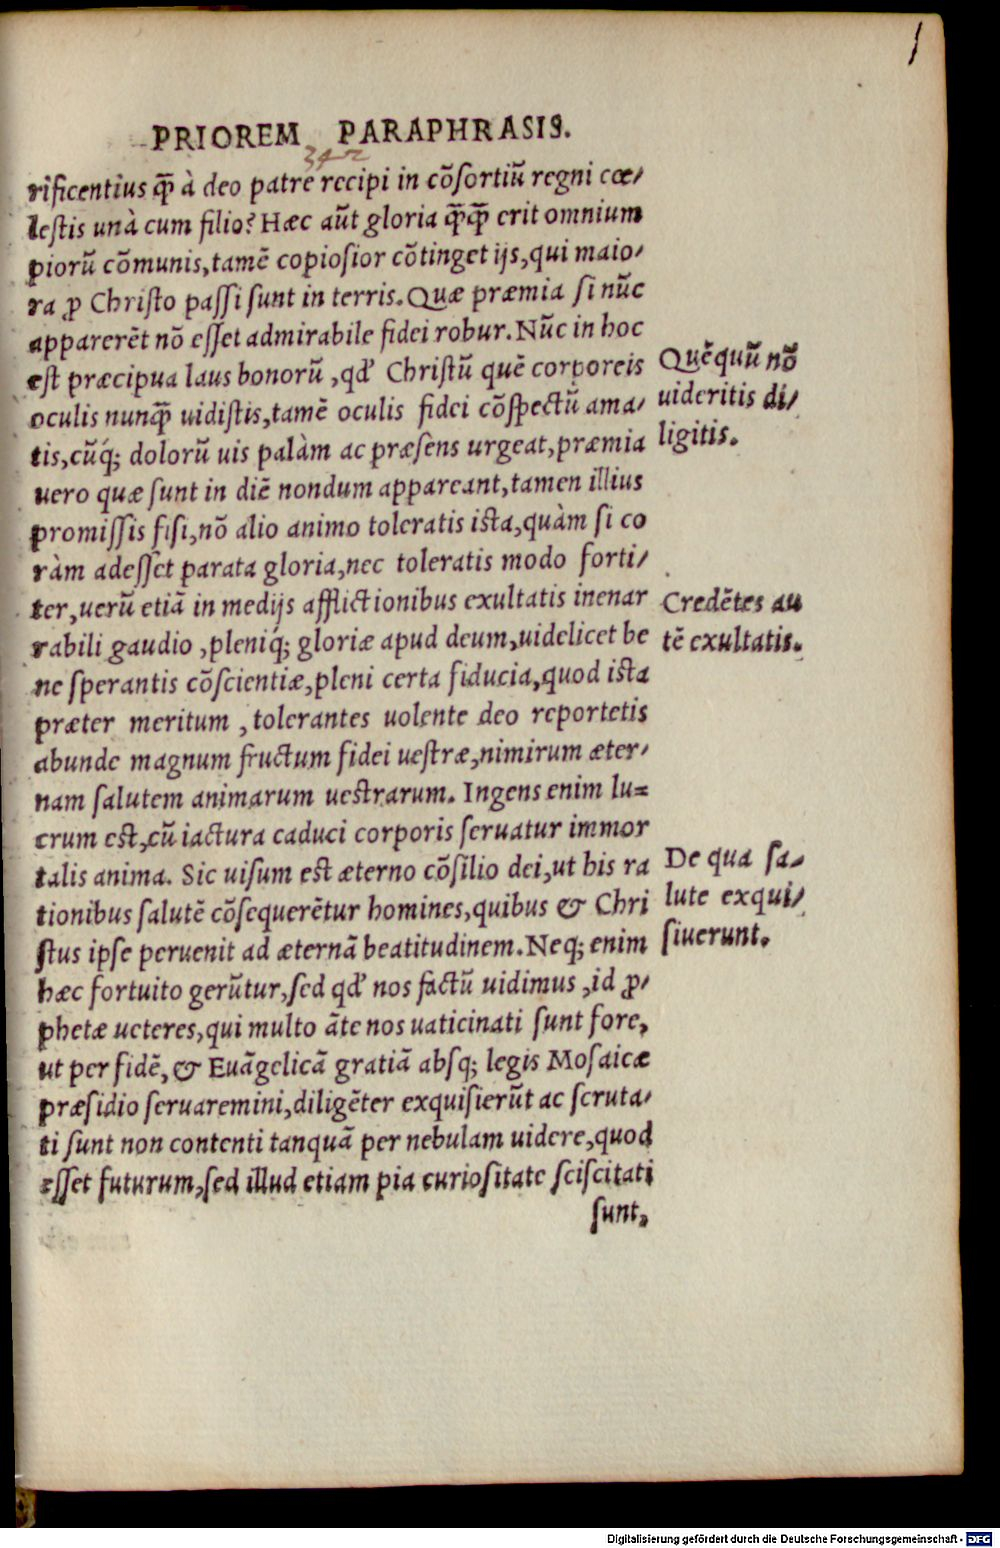 PRIOREM PARAPHRASIS.
342
rificentius q̄̃ à deo patre recipi in cõsortiũ regni cœ/
lestis unà cum filio? Hæc aũt gloria q̄̃q̄̃ erit omnium
piorũ cõmunis, tamẽ copiosior cõtinget ijs, qui maio/
ra ꝓ Christo passi sunt in terris. Quæ præmia si nũc
apparerẽt nõ esset admirabile fidei robur. Nũc in hoc
est præcipua laus bonorũ, qđ Christũ quẽ corporeis
oculis nunq̃ uidistis, tamẽ oculis fidei cõspectũ ama/
tis, cũq́; dolorũ uis palàm ac præsens urgeat, præmia
uero quæ sunt in diẽ nondum appareant, tamen illius
promissis fisi, nõ alio animo toleratis ista, quàm si co
ràm adesset parata gloria, nec toleratis modo forti/
ter, uerũ etiã in medijs afflictionibus exultatis inenar
rabili gaudio, pleniq́; gloriæ apud deum, uidelicet be
ne sperantis cõscientiæ, pleni certa fiducia, quod ista
præter meritum, tolerantes uolente deo reportetis
abunde magnum fructum fidei uestræ, nimirum æter/
nam salutem animarum uestrarum. Ingens enim lu=
crum est, cũ iactura caduci corporis seruatur immor
talis anima. Sic uisum est æterno cõsilio dei, ut his ra
tionibus salutẽ cõsequerẽtur homines, quibus & Chri
stus ipse peruenit ad æternã beatitudinem. Neq; enim
hæc fortuito gerũtur, sed qđ nos factũ uidimus, id ꝓ/
phetæ ueteres, qui multo ãte nos uaticinati sunt fore,
ut per fidẽ, & Euãgelicã gratiã absq; legis Mosaicæ
præsidio seruaremini, diligẽter exquisierũt ac scruta/
ti sunt non contenti tanquã per nebulam uidere, quod
esset futurum, sed illud etiam pia curiositate sciscitati
sunt,
Quẽ quũ nõ
uideritis di/
ligitis.
Credẽtes au
tẽ exultatis.
De qua sa/
lute exqui/
siuerunt.
Digitalisierung gefördert durch die Deutsche Forschungsgemeinschaft - DFG